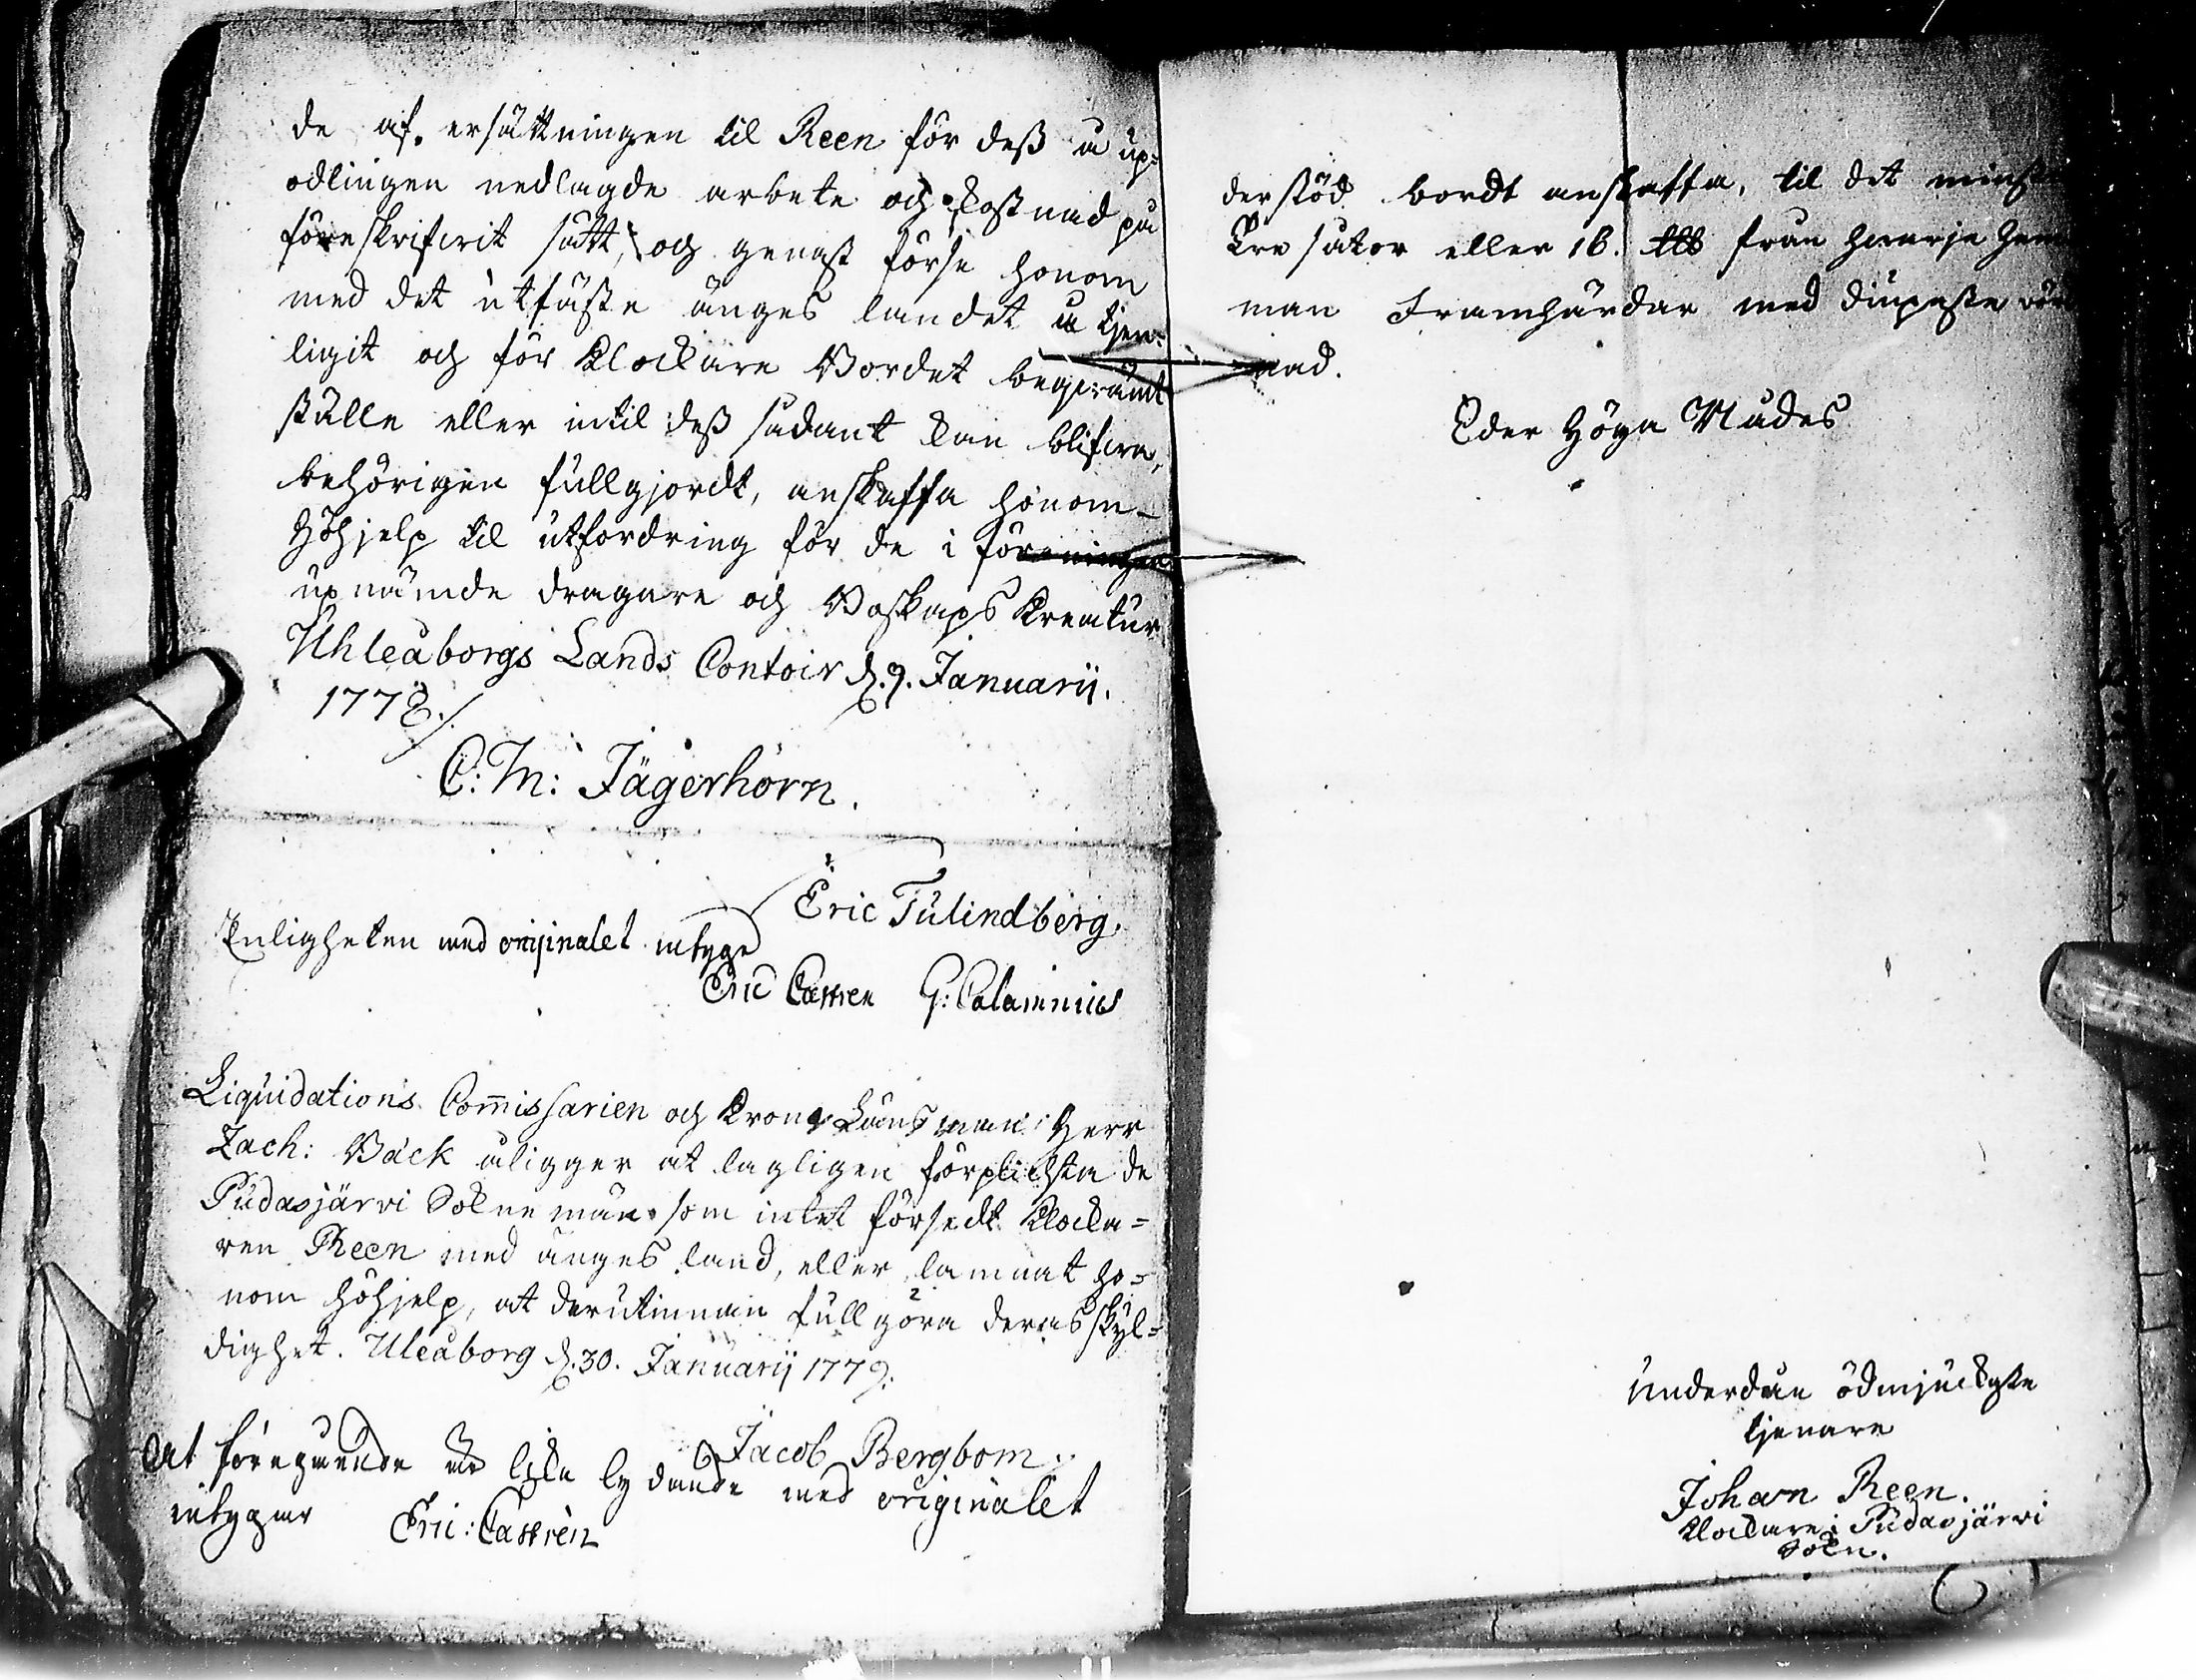 de af. ersättningen til Reen för deß å up=
odlingen nedlagde arbete och kostnad på
föreskrifvit sätt, och genast förse honom
med det utfäste änges landet å tjen=
ligit och för klockare Bordet beqvämt
ställe eller intil deß sådant kan blifva,
behörigen fullgjordt, anskaffa honom
Höhjelp til utfordring för de i föreningen
upnämde dragare och Boskaps Kreatur
Uhleåborgs Lands Contoir d. 9. Januarii.
1778./.
C: M: Jägerhorn.
Eric Tulindberg.
Enligheten med originalet intyga
Eric Castren G: Calamnius
Liquidations Commissarien och Krono Länsman Herr
Zach: Bäck åligger at lagligen förplichta de
Pudasjärvi Sokne män som intet försedt klocka=
ren Reen med änges land, eller lämnat ho=
nom höhjelp, at derutinnan fullgöra deras skyl=
dighet. Uleåborg d. 30. Januarii 1779.
Jacob Bergbom.
At föregående är lika lydande med originalet
intygar Eric: Castrén
derstöd bordt anskaffa, til det minsta
Tre såtor eller 16. från hvarje
man Framhärdar med diupaste vörd
nad.
Eder Höga Nådes
Underdån ödmjuckaste
tjenare
Johan Reen.
klockare i Pudasjärvi
Sokn.